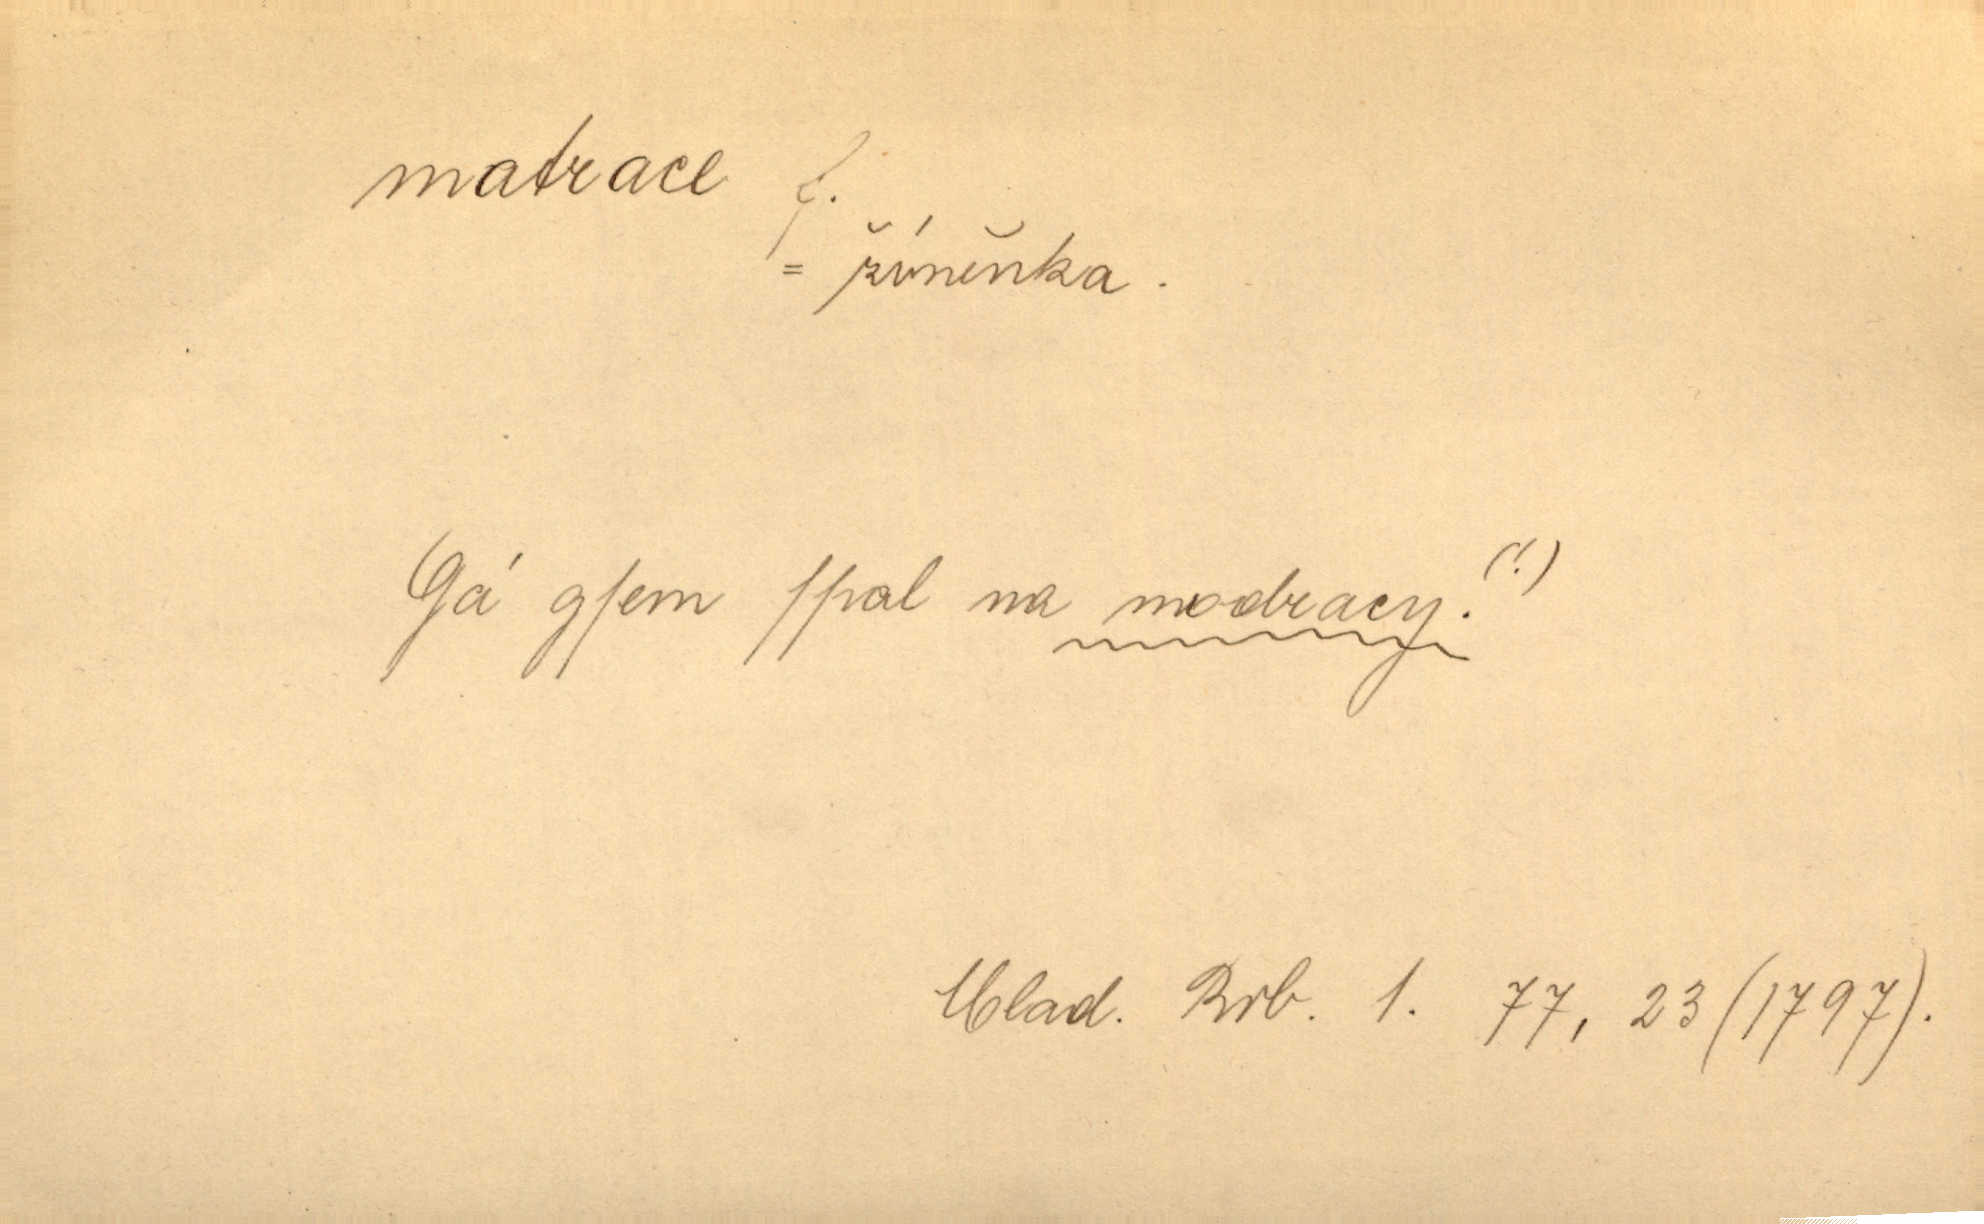 matrace f.
= žíněnka.
Gá gsem spal na modracy.(!)
Mlad. Rob. 1. 77, 23 (1797).